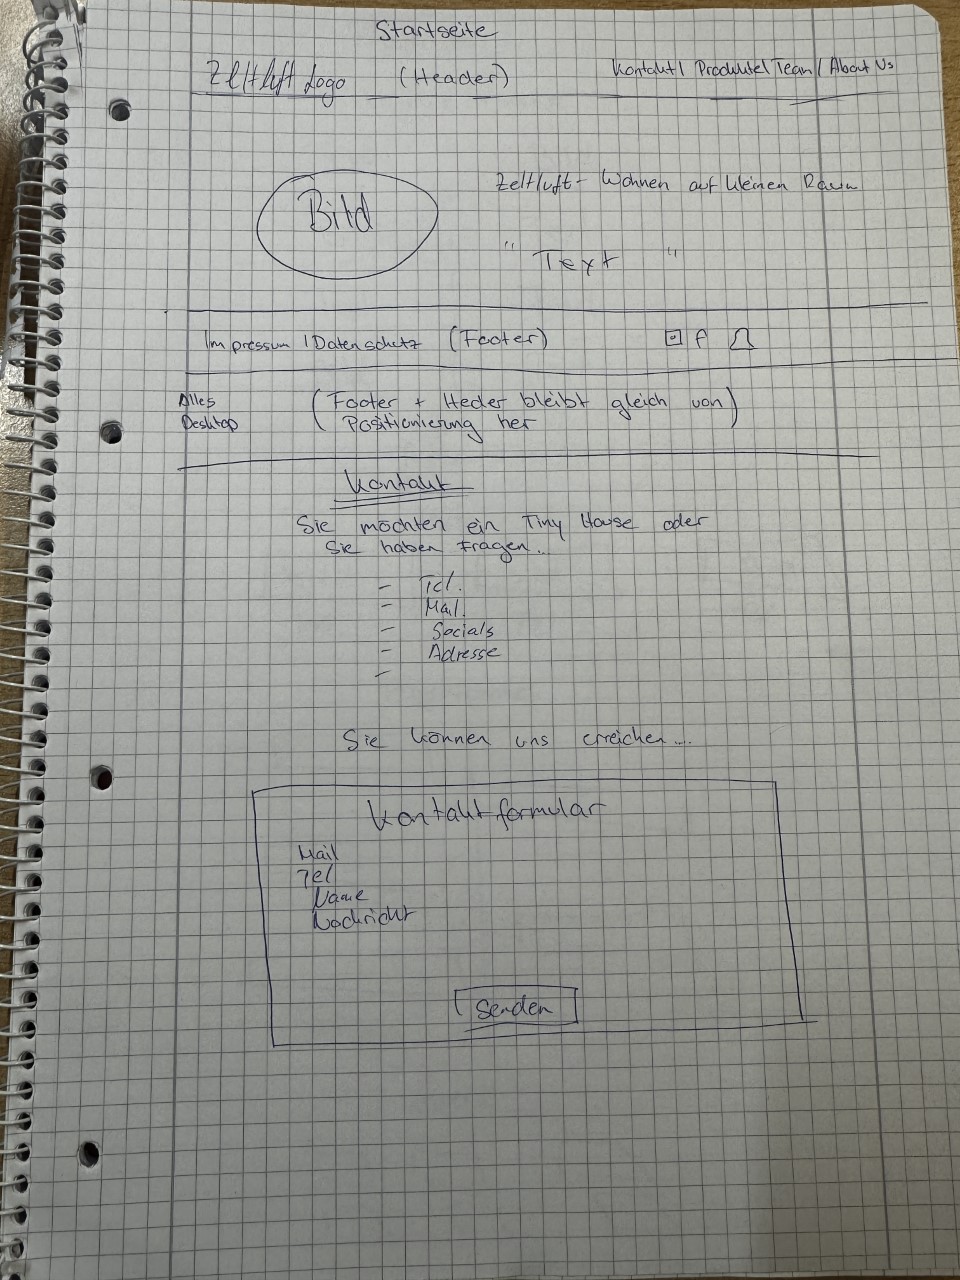 Startseite
Zeltluft Logo (Header) Kontakt | Produkte | Team | About Us
Bild
Zeltluft - Wohnen auf kleinen Raum
" Text "
Impressum | Datenschutz (Footer) f
Alles
Desktop
(Footer + Heder bleibt gleich von
Positionierung her)
Kontakt
Sie möchten ein Tiny House oder
Sie haben Fragen...
- Tel.
- Mail.
- Socials
- Adresse
-
Sie können uns erreichen....
Kontaktformular
Mail
Tel
Name
Nachricht
Senden